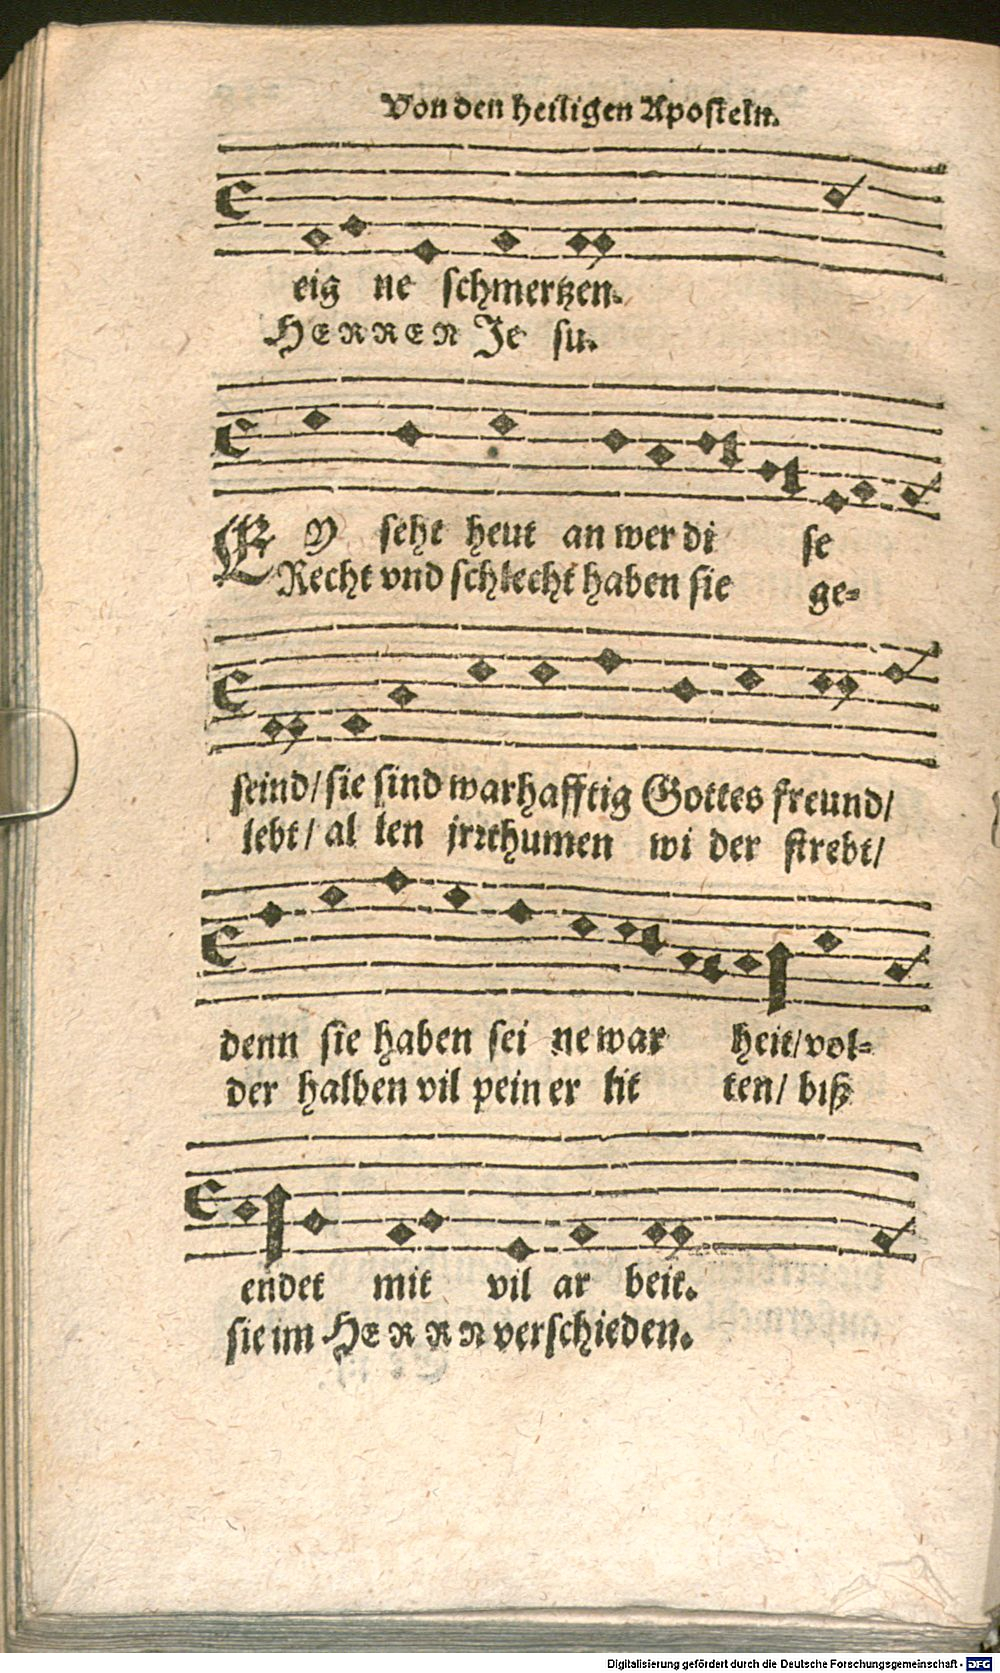 Von den heiligen Aposteln.
eig ne schmertzen.
HERREN Je su.
EY seht heut an wer di se
Recht vnd schlecht haben sie ge=
seind/ sie sind warhafftig Gottes freund/
lebt/ al len jrrthumen wi der strebt/
denn sie haben sei ne war heit/ vol=
der halben vil pein er lit ten/ biß
endet mit vil ar beit.
sie im HERRN verschieden.
Digitalisierung gefördert durch die Deutsche Forschungsgemeinschaft - DFG